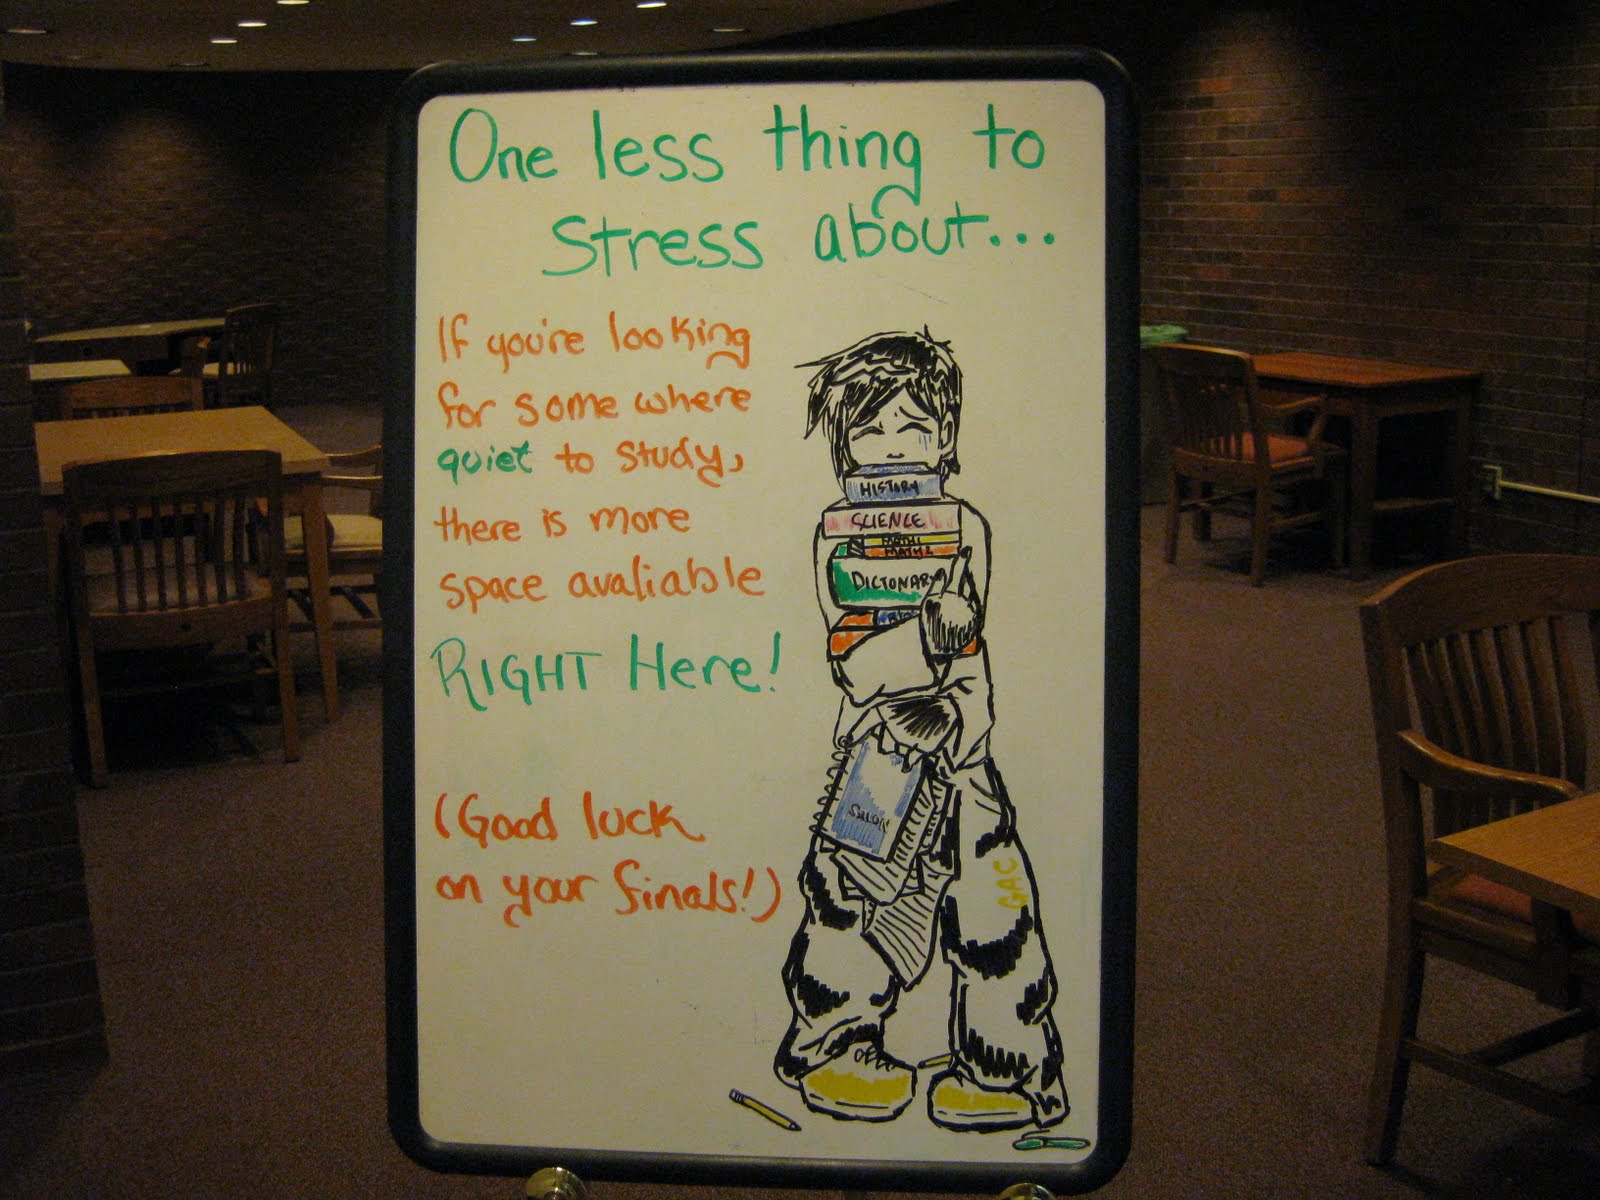 One less thing to
stress about...
If you're looking
for some where
quiet to study,
there is more
space avaliable
RIGHT Here!
(Good luck
on your finals!)
HISTORY
SCIENCE
MATH 1
MATH 2
DICTONARY
GAC